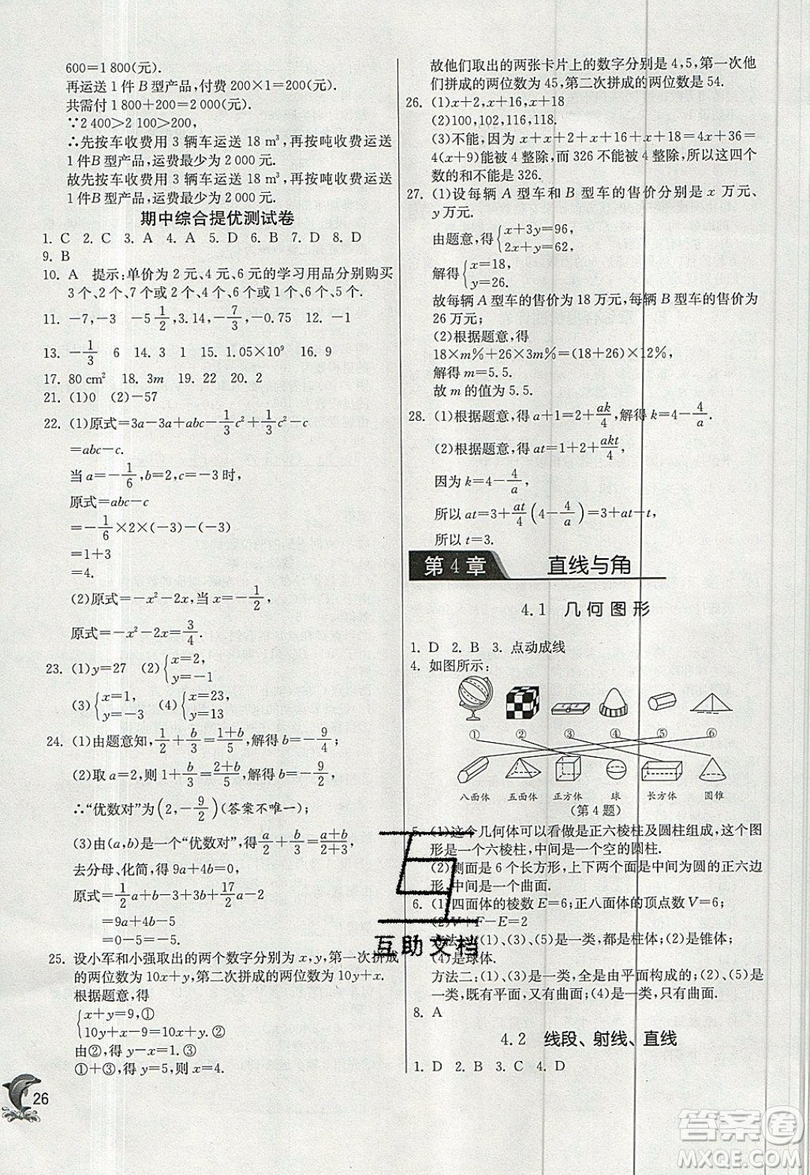 600=1 800(元).
再运送 1 件 B 型产品，付费 200×1=200(元).
共需付 1 800+200=2 000(元).
∵2 400>2 100>2 000,
∴先按车收费用 3 辆车运送 18 m³，再按吨收费运送
1 件B 型产品，运费最少为 2 000 元.
故先按车收费用 3 辆车运送 18 m³，再按吨收费运送
1 件 B 型产品，运费最少为 2 000 元.
期中综合提优测试卷
1. C 2. C 3. A 4. A 5. D 6. C 7. B 8. D
9. B
10. A 提示：单价为 2 元、4 元、6 元的学习用品分别购买
3 个、2 个、7 个或 2 个、4 个、6 个或 1 个、6 个、5 个.
11. -7, -3 -5 1/2, 3.14, -7/3, -0.75 12. -1
13. -1/3 6 14. 3 15. 1.05×10⁹ 16. 9
17. 80 cm² 18. 3m 19. 22 20. 2
21. (1)0 (2)-57
22. (1)原式=3a-3a+abc-1/3c²+1/3c²-c
=abc-c.
当 a=-1/6, b=2, c=-3 时，
原式=abc-c
=-1/6×2×(-3)-(-3)
=1+3
=4.
(2)原式=-x²-2x，当 x=-1/2时，
原式=-x²-2x=3/4.
23. (1)y=27 (2){x=2, y=-1
(3){x=1, y=-3 (4){x=23, y=13
24. (1)由题意知，1/2+b/3=(1+b)/5，解得 b=-9/4;
(2)取 a=2，则 1+b/3=(2+b)/5，解得 b=-9/2,
∴“优数对”为(2,-9/2)(答案不唯一).
(3)由(a,b)是一个“优数对”，得 a/2+b/3=(a+b)/(2+3).
去分母、化简，得 9a+4b=0,
则原式=17/2a+4b-5+1/2a-0
=9a+4b-5
=0-5=-5.
25. 设小军和小强取出的两个数字分别为 x,y，第一次拼成
的两位数为 10x+y，第二次拼成的两位数为 10y+x.
根据题意，得
{x+y=9,①
10y+x-9=10x+y.②
由②，得 y-x=1.③
①+③，得 y=5，则 x=4.
26
故他们取出的两张卡片上的数字分别是 4,5，第一次他
们拼成的两位数为 45，第二次拼成的两位数是 54.
26. (1)x+2,x+16,x+18
(2)100,102,116,118.
(3)不能，因为 x+x+2+x+16+x+18=4x+36=
4(x+9)能被 4 整除，而 326 不能被 4 整除，所以这四个
数的和不能是 326.
27. (1)设每辆 A 型车和 B 型车的售价分别是 x 万元、
y 万元.
由题意，得{x+3y=96, 2x+y=62,
解得{x=18, y=26.
故每辆 A 型车的售价为 18 万元，每辆 B 型车的售价为
26 万元.
(2)根据题意，得
18×m%+26×5%=(18+26)×12%,
解得 m=5.5.
故 m 的值为 5.5.
28. (1)根据题意，得 a+1=2+ak/4，解得 k=4-4/a.
(2)根据题意，得 at=1+2+akt/4,
因为 k=4-4/a,
所以 at=3+at/4(4-4/a)=3+at-t,
所以 t=3.
第 4 章 直线与角
4.1 几何图形
1. D 2. B 3. 点动成线
4. 如图所示：
① ② ③ ④ ⑤ ⑥
八面体 五面体 正方体 球 长方体 圆锥
(第 4 题)
5. (1)这个几何体可以看做是正六棱柱及圆柱组成，这个图
形是一个六棱柱，中间是一个空的圆柱.
(2)侧面是 6 个长方形，上下两个面是中间为圆的正六边
形，中间是一个曲面.
6. (1)四面体的棱数 E=6；正八面体的顶点数 V=6;
(2)V+F-E=2
方法一：(1)(2)(5)是柱体；(3)是锥体；
(4)是球体.
方法二：(1)(3)(5)是一类，全是由平面构成的；(2)是
一类，既有平面，又有曲面；(4)是一类，只有曲面.
8. A
4.2 线段、射线、直线
1. D 2. B 3. C 4. D
互助文档
答案圈
MXQE.COM